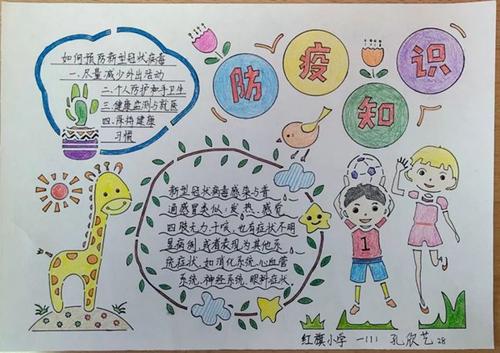 防疫知识
如何预防新型冠状病毒
一.尽量减少外出活动
二.个人防护和手卫生
三.健康监测与就医
四.保持健康
习惯
新型冠状病毒感染与普
通感冒类似:发热、感觉
四肢无力、干咳,也有症状不明
显病例,或者表现为其他系
统症状,如消化系统、心血管
系统、神经系统、眼科症状.
1
红旗小学 一(1) 孔欣艺 28